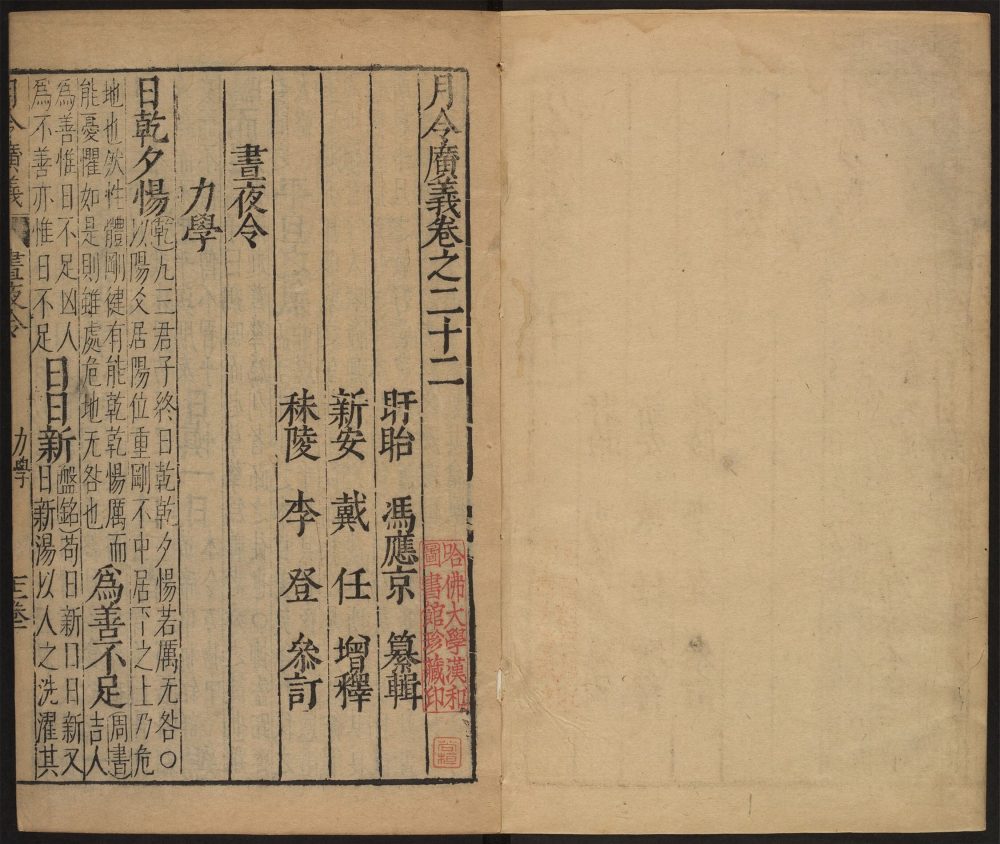 月令廣義卷之二十二
盱眙　馮應京　纂輯
新安　戴任　增釋
秣陵　李登　參訂
晝夜令
力學
日乾夕惕
乾九三君子終日乾乾夕惕若厲无咎〇
以陽爻居陽位重剛不中居下之上乃危
地也然性體剛健有能乾乾惕厲而
能憂懼如是則雖處危地无咎也
為善不足
周書
吉人
為善惟日不足凶人
為不善亦惟日不足
日日新
盤銘苟日新日日新又
日新湯以人之洗濯其
月令廣義
晝夜令
力學
哈佛大學漢和
圖書館珍藏印